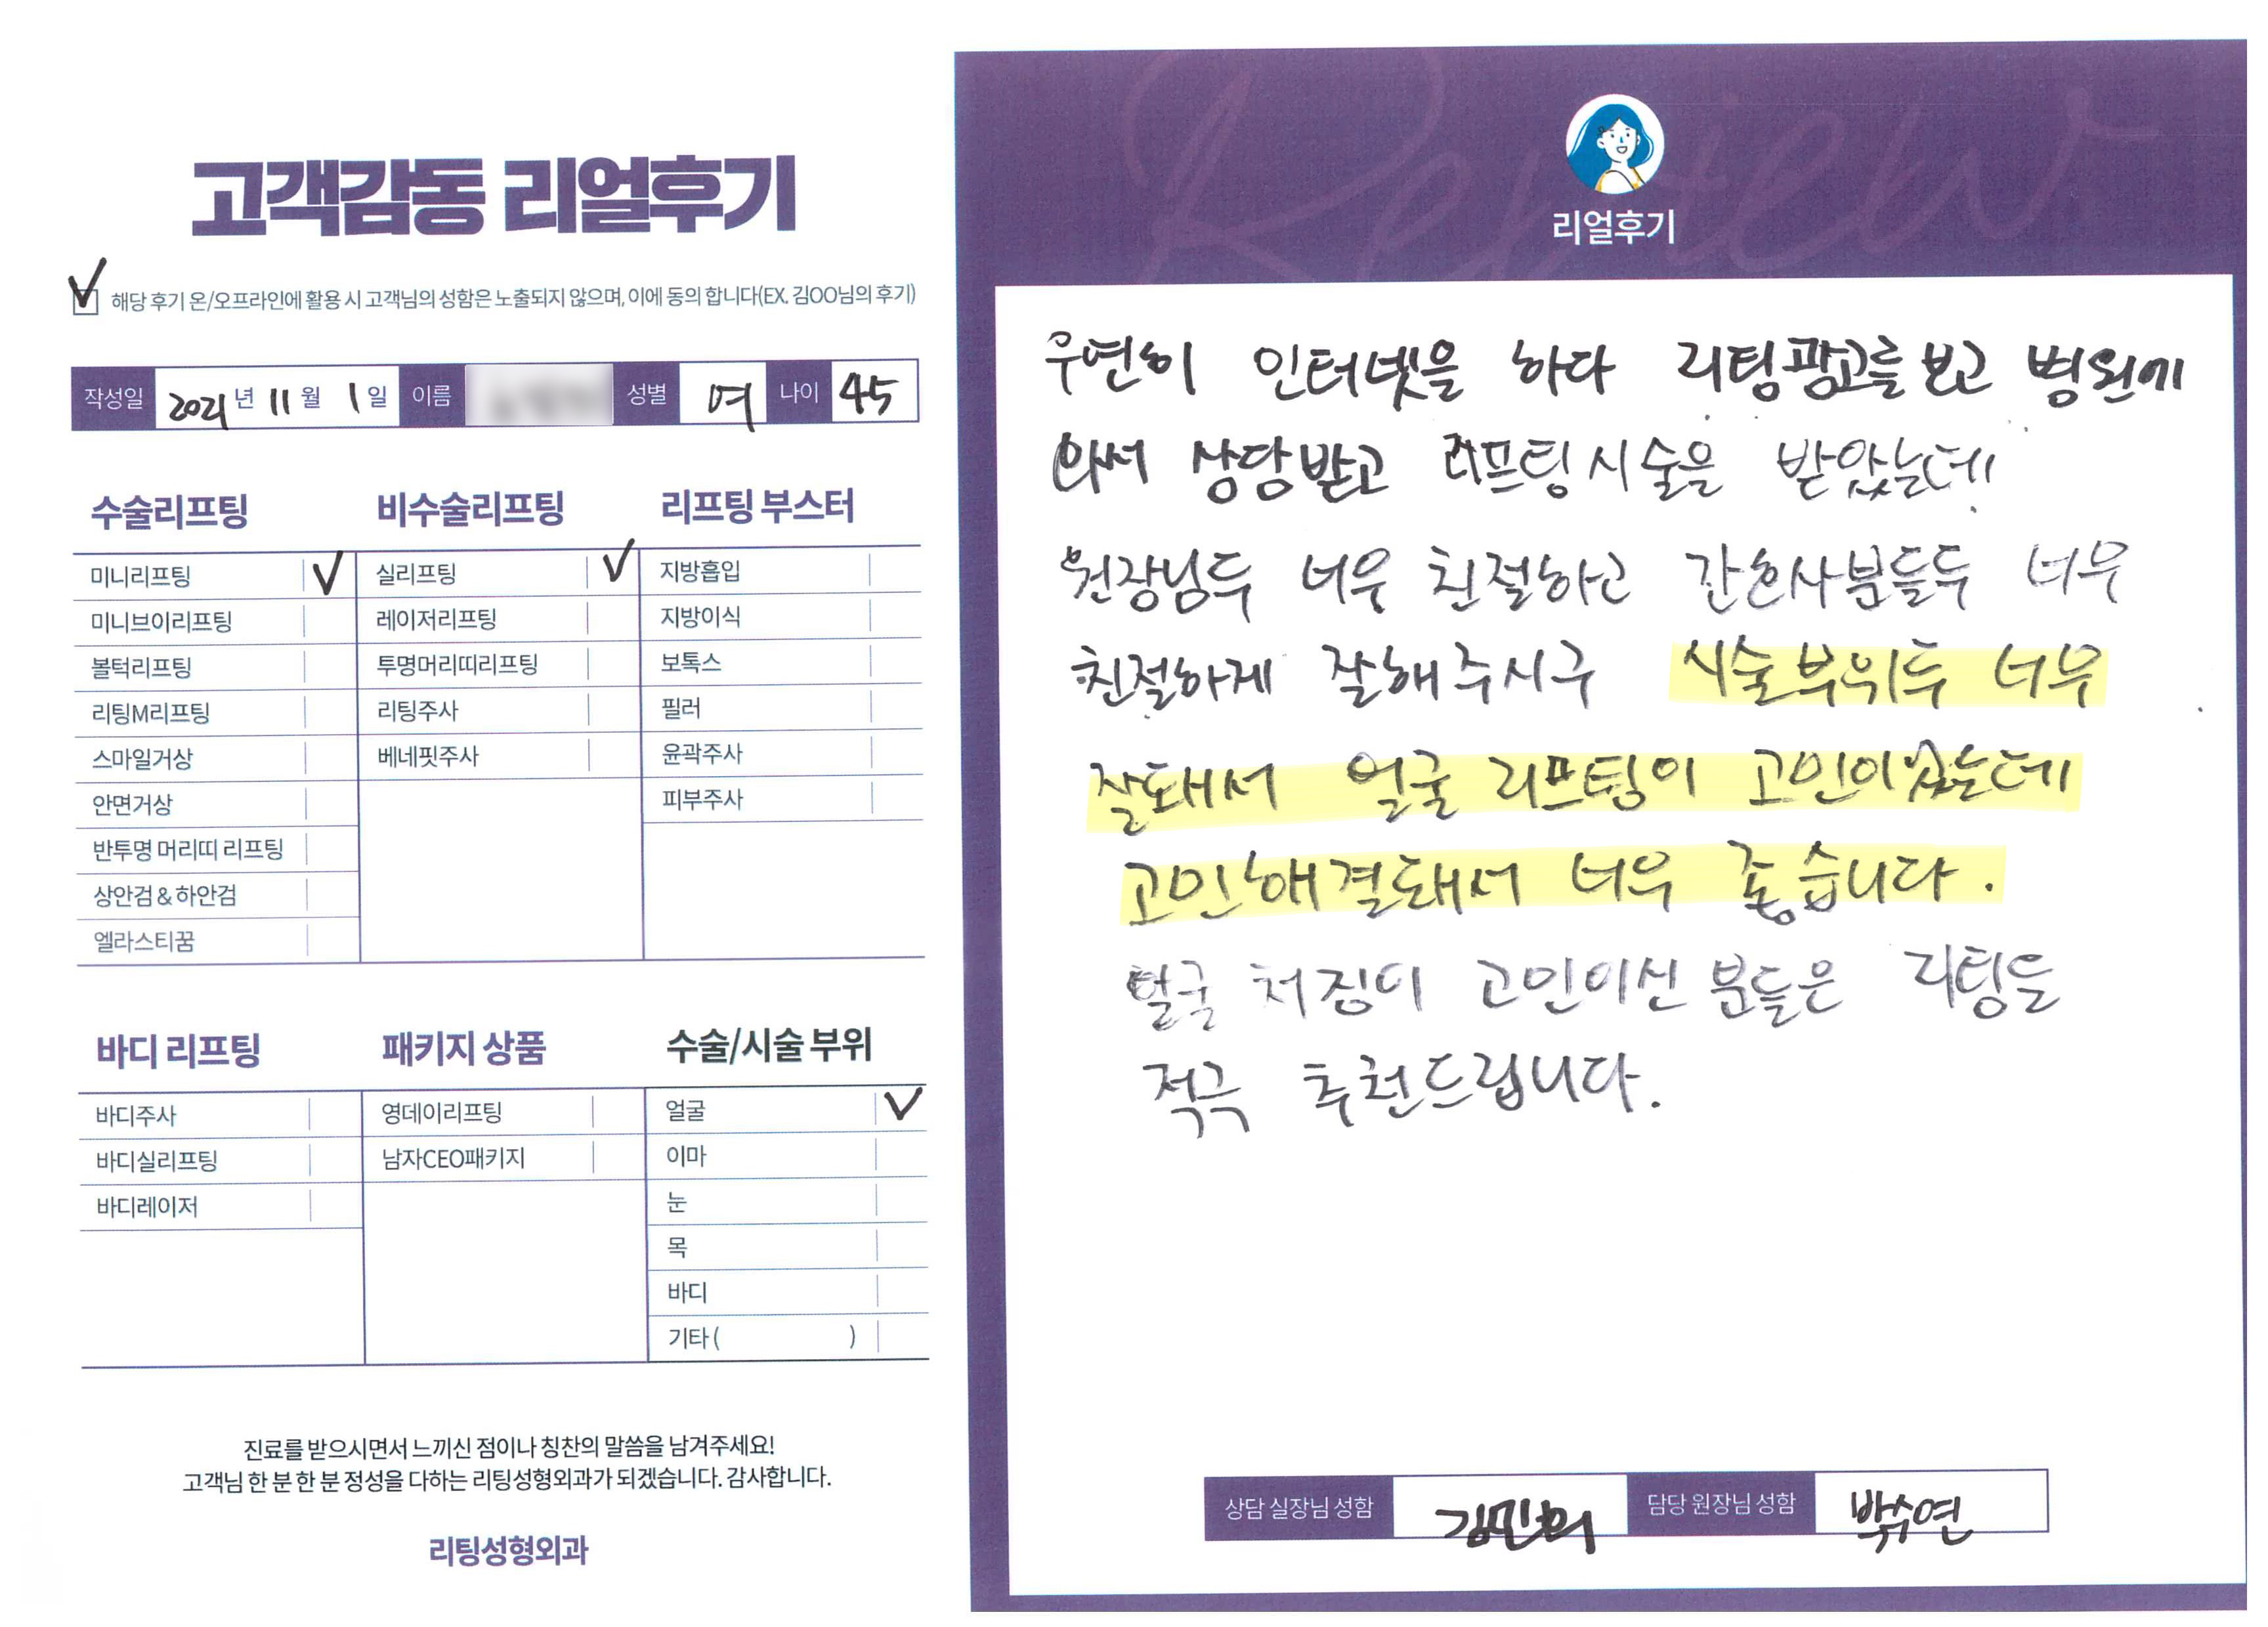 고객감동 리얼후기
해당 후기 온/오프라인에 활용 시 고객님의 성함은 노출되지 않으며, 이에 동의 합니다(EX. 김OO님의 후기)
작성일 2021년 11월 1일 이름 성별 여 나이 45
수술리프팅
미니리프팅 ✓
미니브이리프팅
볼턱리프팅
리팅M리프팅
스마일거상
안면거상
반투명 머리띠 리프팅
상안검 & 하안검
엘라스티꿈
비수술리프팅
실리프팅 ✓
레이저리프팅
투명머리띠리프팅
리팅주사
베네핏주사
리프팅 부스터
지방흡입
지방이식
보톡스
필러
윤곽주사
피부주사
바디 리프팅
바디주사
바디실리프팅
바디레이저
패키지 상품
영데이리프팅
남자CEO패키지
수술/시술 부위
얼굴 ✓
이마
눈
목
바디
기타 ( )
진료를 받으시면서 느끼신 점이나 칭찬의 말씀을 남겨주세요!
고객님 한 분 한 분 정성을 다하는 리팅성형외과가 되겠습니다. 감사합니다.
리팅성형외과
Review
리얼후기
우연히 인터넷을 하다 리팅광고를 보고 병원에
와서 상담받고 리프팅시술을 받았는데
원장님두 너무 친절하고 간호사분들두 너무
친절하게 잘해주시구 시술부위두 너무
잘돼서 얼굴 리프팅이 고민이였는데
고민해결돼서 너무 좋습니다.
얼굴 처짐이 고민이신 분들은 리팅을
적극 추천드립니다.
상담 실장님 성함 김민희 담당 원장님 성함 박수연